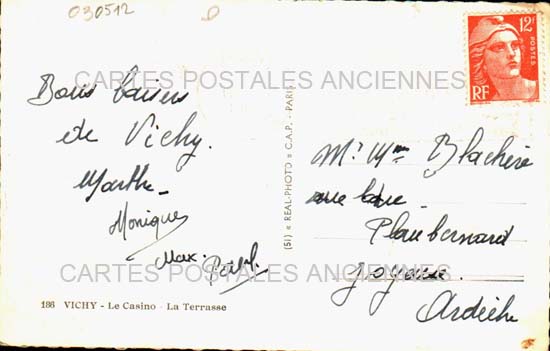 030512
CARTES POSTALES ANCIENNES
12F
POSTES
RF
Bons baisers
de Vichy.
Marthe
Monique
Max.
(51) « REAL-PHOTO » C.A.P. - PARIS
Mr Mme Blachère
Planbernard
Joyeuse.
Ardèche
CARTES POSTALES ANCIENNES
186 VICHY - Le Casino - La Terrasse